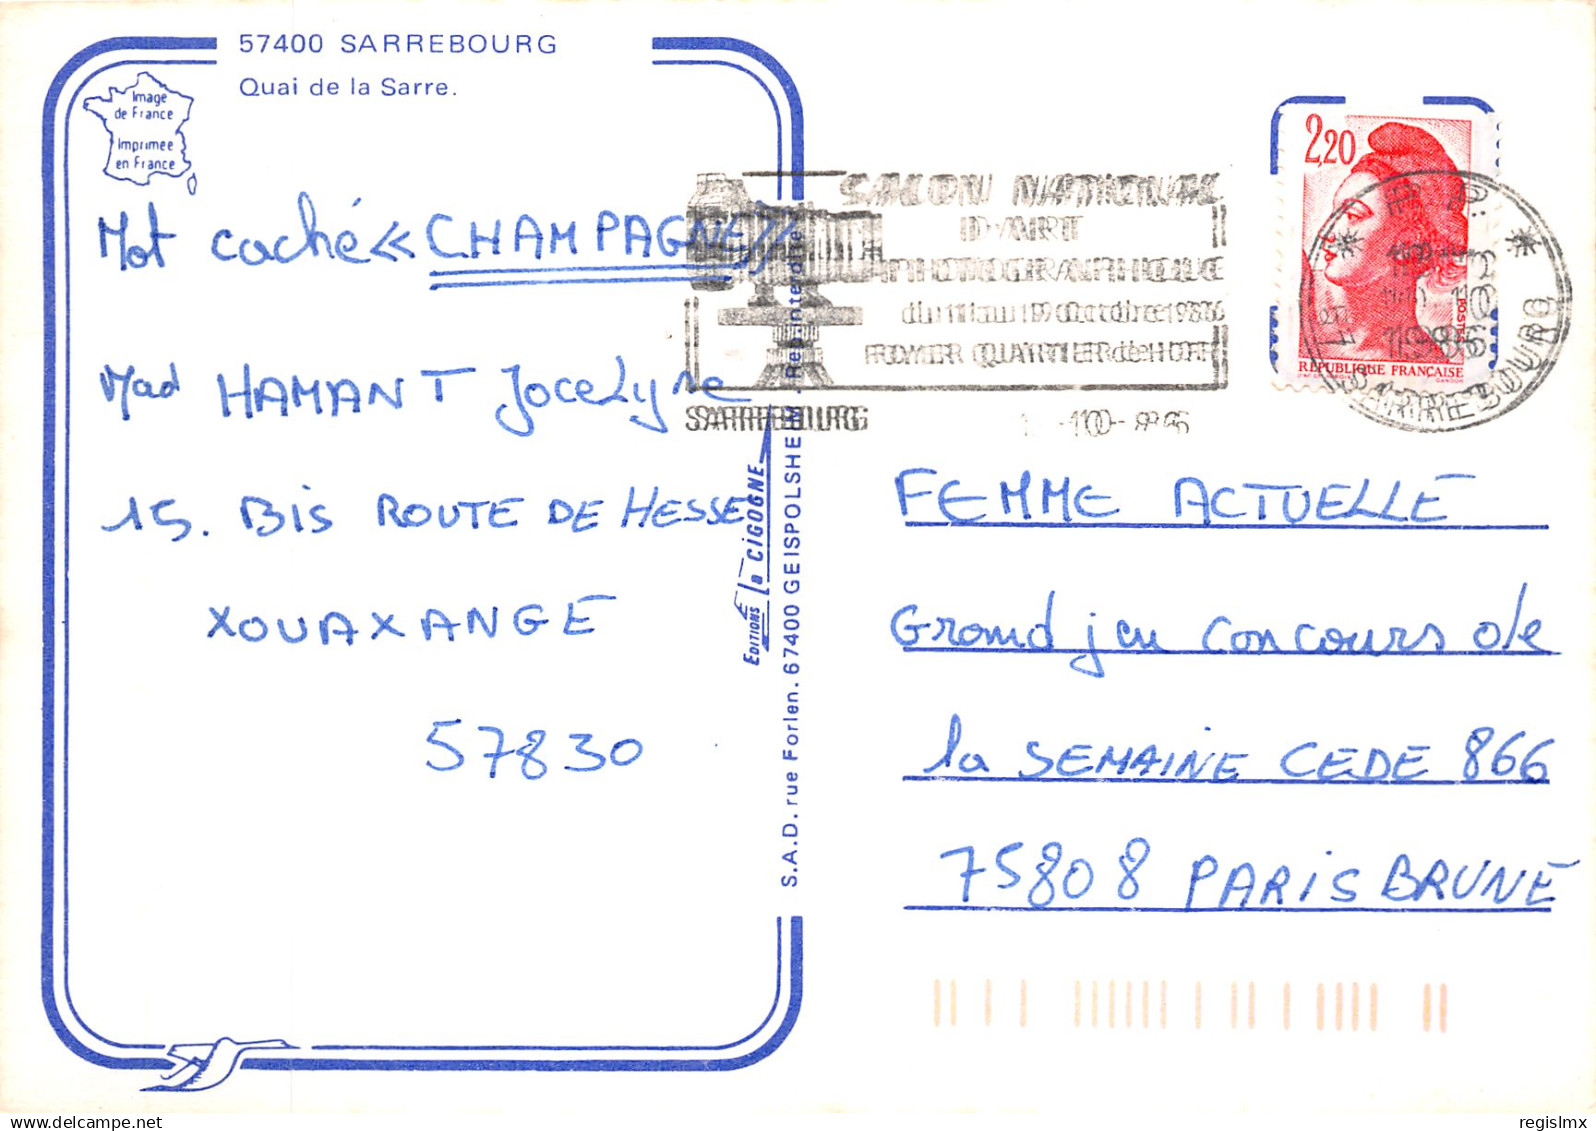 57400 SARREBOURG
Quai de la Sarre.
Image
de France
Imprimée
en France
Mot caché « CHAMPAGNE »
Mad HAMANT Jocelyne
15. Bis ROUTE DE HESSE
XOUAXANGE
57830
Editions la CIGOGNE
S.A.D. rue Forlen. 67400 GEISPOLSHEIM - Rep. interdite
SALON NATIONAL
D'ART
PHOTOGRAPHIQUE
du 11 au 19 Octobre 1986
FOYER QUARTIER de HOFF
SARREBOURG
2,20
POSTES
RÉPUBLIQUE FRANÇAISE
GANDON
1986
SARREBOURG
FEMME ACTUELLE
Grand jeu Concours de
la SEMAINE CEDE 866
75808 PARIS BRUNE
regislmx